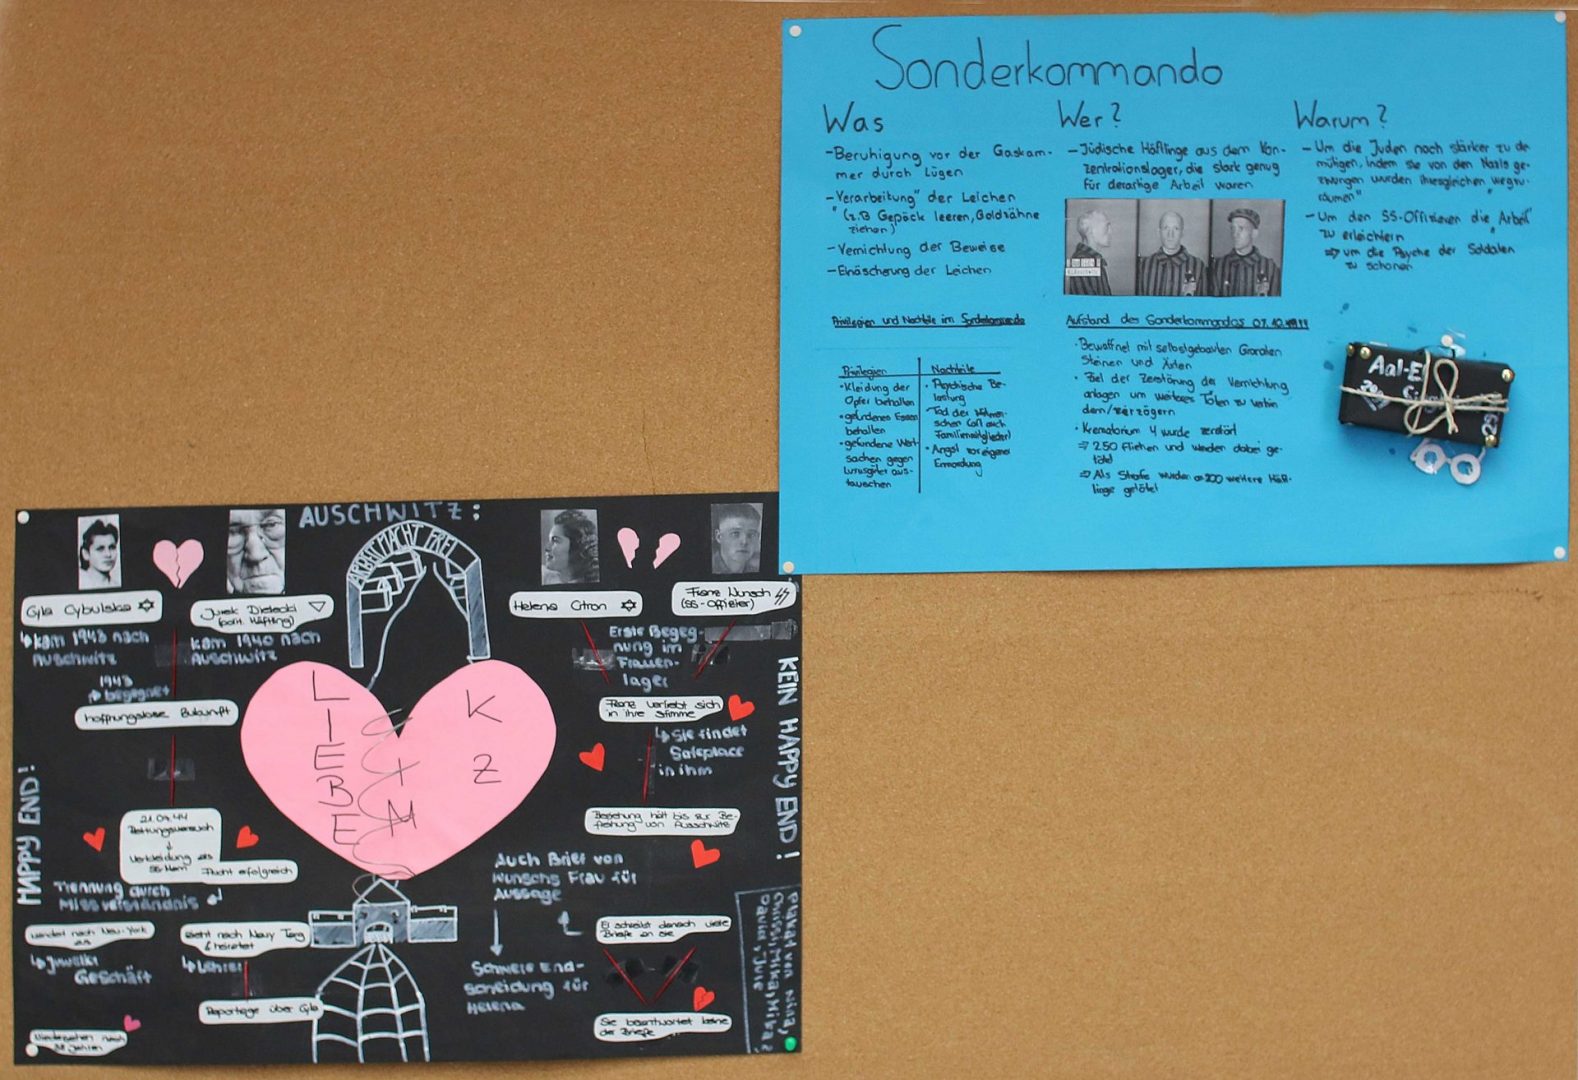 Sonderkommando
Was
-Beruhigung vor der Gaskam-
mer durch Lügen
-"Verarbeitung" der Leichen
(z.B Gepäck leeren, Goldzähne
ziehen)
-Vernichtung der Beweise
-Einäscherung der Leichen
Wer?
-Jüdische Häftlinge aus dem Kon-
zentrationslager, die stark genug
für derartige Arbeit waren
Warum?
-Um die Juden noch stärker zu de-
mütigen, indem sie von den Nazis ge-
zwungen wurden ihresgleichen "wegzu-
räumen"
-Um den SS-Offizieren die "Arbeit"
zu erleichtern
⇒ um die Psyche der Soldaten
zu schonen
Privilegien und Nachteile im Sonderkommando
Privilegien
•Kleidung der
Opfer behalten
•gefundenes Essen
behalten
•gefundene Wert-
sachen gegen
Luxusgüter aus-
tauschen
Nachteile
•Psychische Be-
lastung
•Angst vor eigener
Ermordung
Aufstand des Sonderkommandos 07.10.1944
•Bewaffnet mit selbstgebauten Granaten
Steinen und Äxten
•Ziel der Zerstörung der Vernichtung
anlagen um weiteres Töten zu verhin
dern/verzögern
•Krematorium 4 wurde zerstört
⇒ 250 fliehen und werden dabei ge-
tötet
⇒ Als Strafe wurden ca 200 weitere Häft-
linge getötet
Aal-E
AUSCHWITZ:
ARBEIT MACHT FREI
Cyla Cybulska
↳kam 1943 nach
Auschwitz
Jurek Bielecki
(polit. Häftling)
kam 1940 nach
Auschwitz
1943
↳ begegnet
hoffnungslose Zukunft
21.07.44
Rettungsversuch
↓
Verkleidung als
SS-Mann
Flucht erfolgreich
Trennung durch
Missverständnis
wandert nach New-York
aus
↳Juwelier
Geschäft
zieht nach Nowy Targ
& heiratet
↳Lehrer
Reportage über Cyla
Wiedersehen nach
Jahren
HAPPY END!
LIEBE
IM
KZ
Helena Citron
Franz Wunsch
(SS-Offizier)
Erste Begeg-
nung im
Frauen-
lager
Franz verliebt sich
in ihre Stimme
↳Sie findet
Safeplace
in ihm
Beziehung hält bis zur Be-
freiung von Auschwitz
Auch Brief von
Wunschs Frau für
Aussage
Er schreibt danach viele
Briefe an sie
Schwere End-
scheidung für
Helena
Sie beantwortet keine
der Briefe
KEIN HAPPY END!
Plakat von